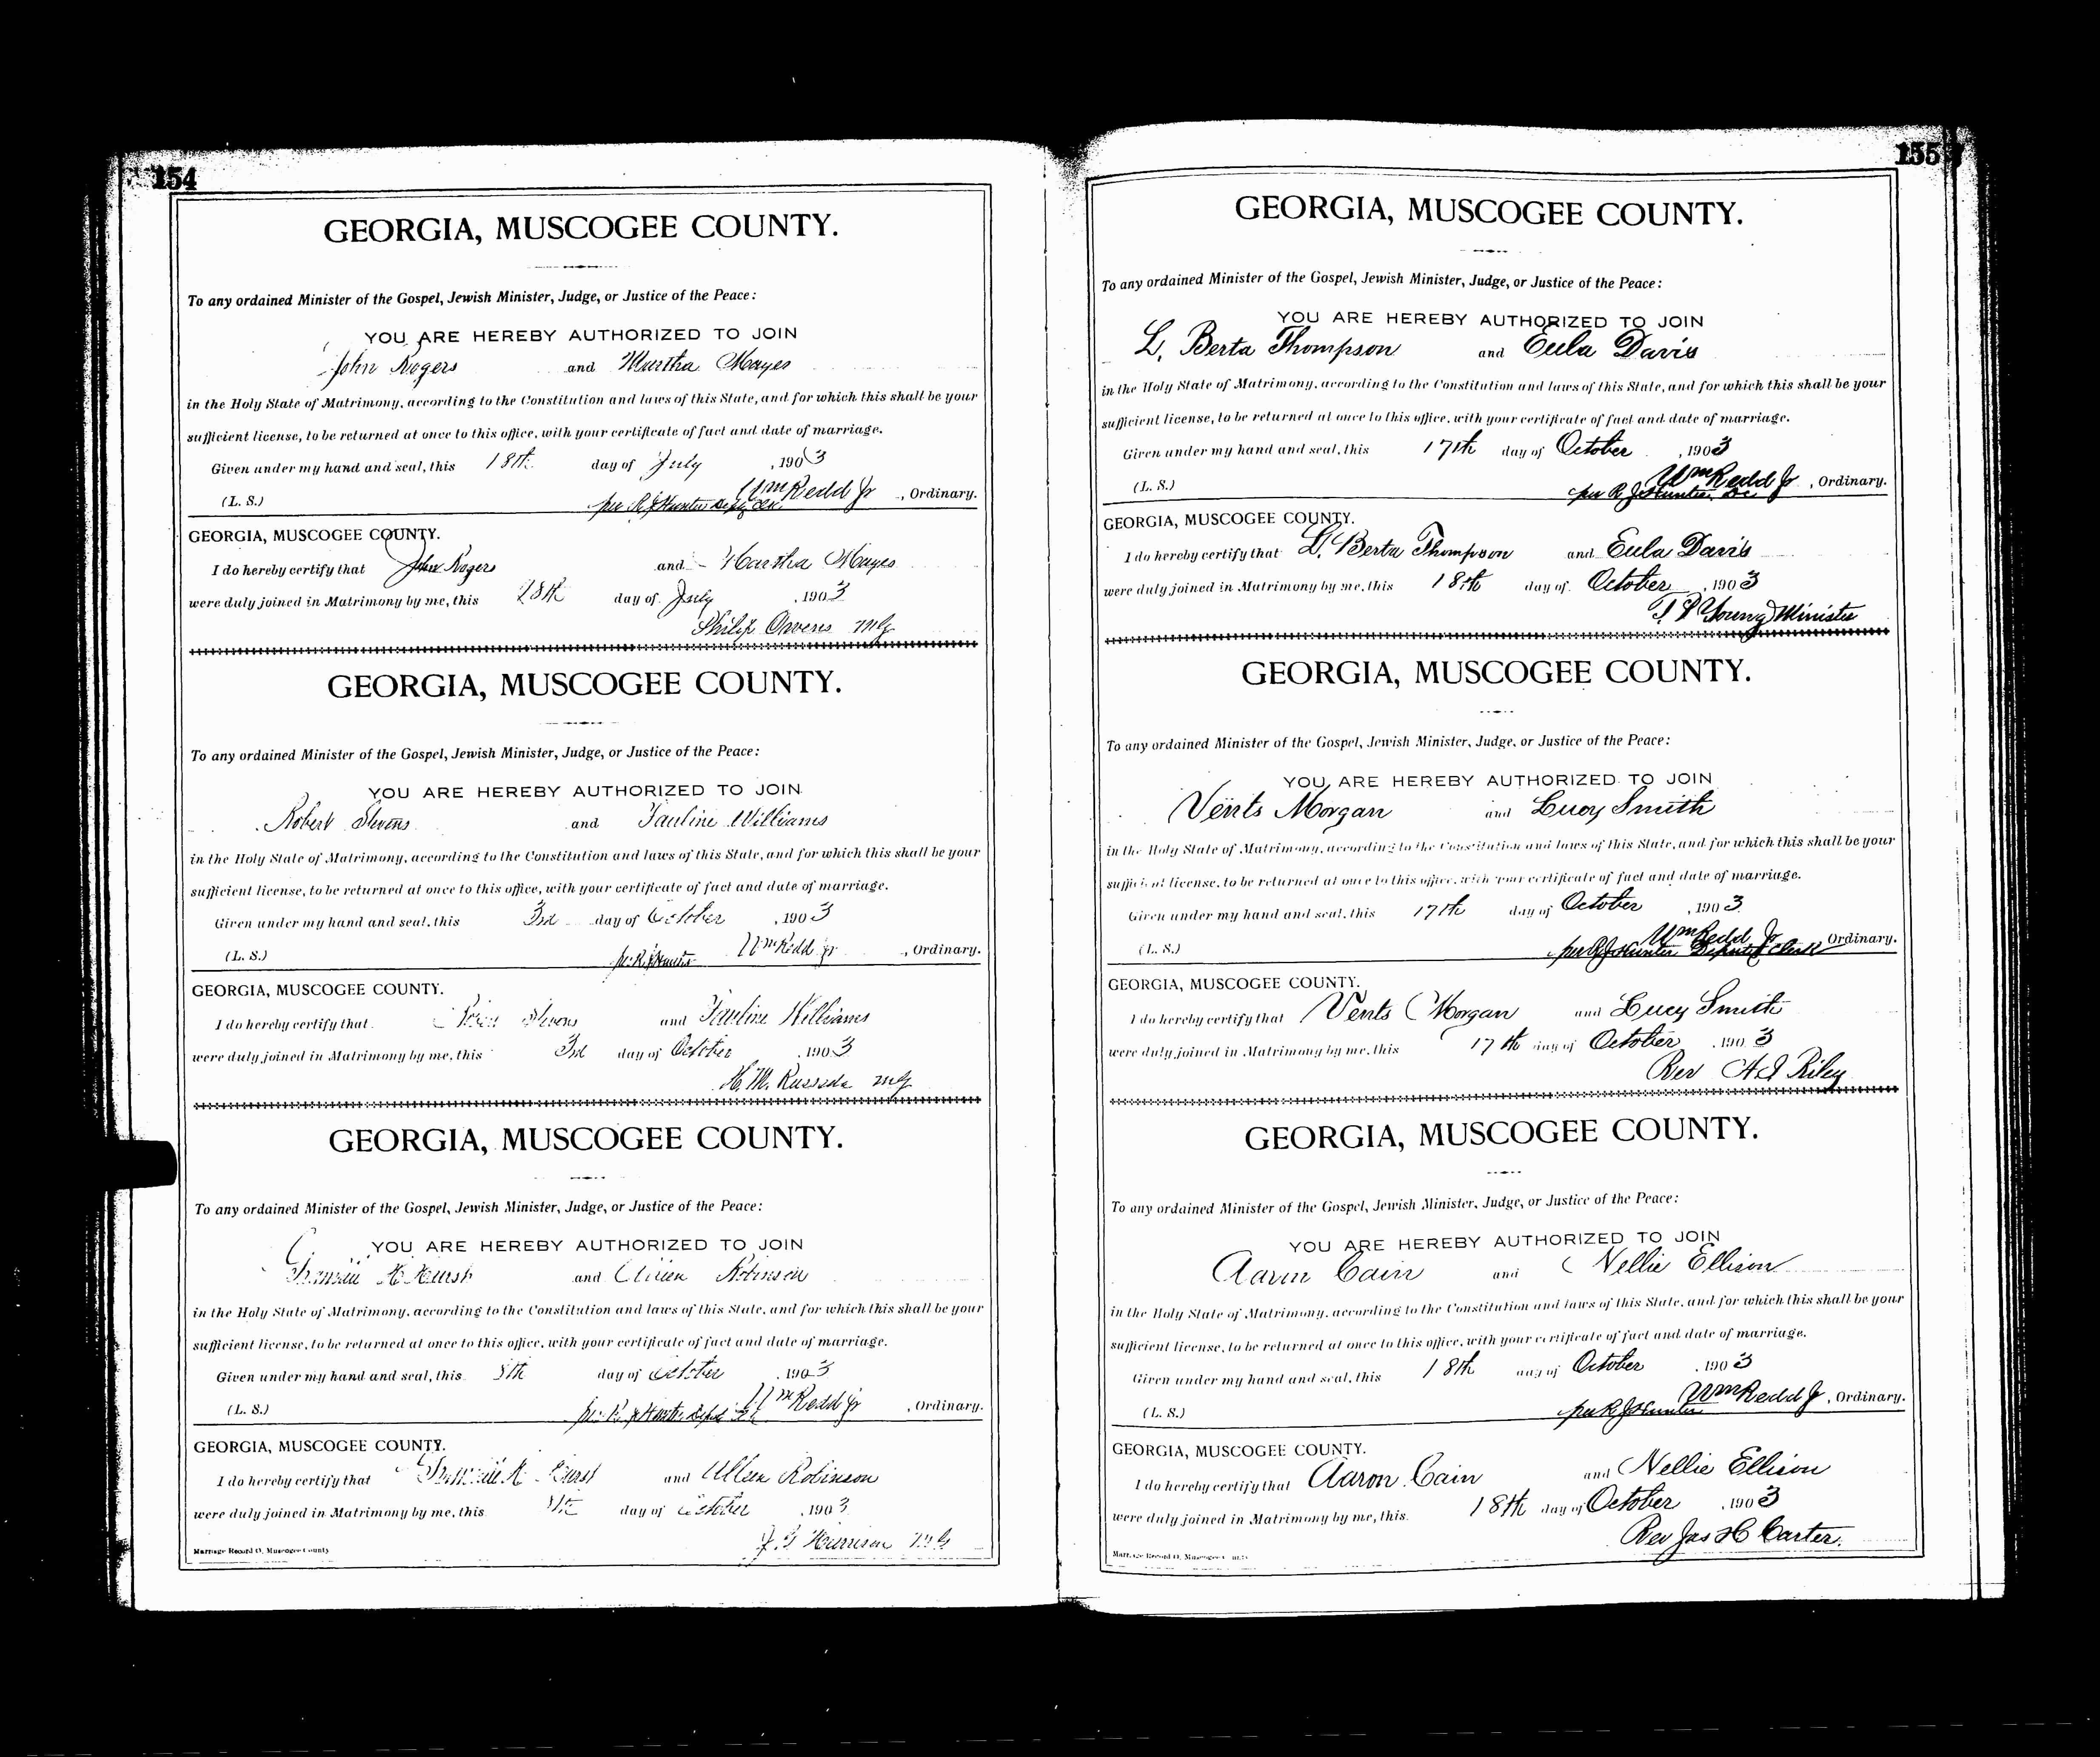 154
GEORGIA, MUSCOGEE COUNTY.
To any ordained Minister of the Gospel, Jewish Minister, Judge, or Justice of the Peace:
YOU ARE HEREBY AUTHORIZED TO JOIN
John Rogers and Martha Mayes
in the Holy State of Matrimony, according to the Constitution and laws of this State, and for which this shall be your
sufficient license, to be returned at once to this office, with your certificate of fact and date of marriage.
Given under my hand and seal, this 18th day of July, 1903
Wm Redd Jr
(L. S.) per R J Hunter , Ordinary.
GEORGIA, MUSCOGEE COUNTY.
I do hereby certify that John Rogers and Martha Mayes
were duly joined in Matrimony by me, this 18th day of July, 1903
Philip Owens MG
GEORGIA, MUSCOGEE COUNTY.
To any ordained Minister of the Gospel, Jewish Minister, Judge, or Justice of the Peace:
YOU ARE HEREBY AUTHORIZED TO JOIN
Robert Stevens and Pauline Williams
in the Holy State of Matrimony, according to the Constitution and laws of this State, and for which this shall be your
sufficient license, to be returned at once to this office, with your certificate of fact and date of marriage.
Given under my hand and seal, this 3rd day of October, 1903
(L. S.) per R J Hunter Wm Redd Jr , Ordinary.
GEORGIA, MUSCOGEE COUNTY.
I do hereby certify that Stevens and Pauline Williams
were duly joined in Matrimony by me, this 3rd day of October, 1903
H. M. MG
GEORGIA, MUSCOGEE COUNTY.
To any ordained Minister of the Gospel, Jewish Minister, Judge, or Justice of the Peace:
YOU ARE HEREBY AUTHORIZED TO JOIN
and Robinson
in the Holy State of Matrimony, according to the Constitution and laws of this State, and for which this shall be your
sufficient license, to be returned at once to this office, with your certificate of fact and date of marriage.
Given under my hand and seal, this 8th day of October, 1903
(L. S.) Wm Redd Jr , Ordinary.
GEORGIA, MUSCOGEE COUNTY.
I do hereby certify that and Robinson
were duly joined in Matrimony by me, this day of October, 1903
J. G. Harrison MG
Marriage Record O, Muscogee County
155
GEORGIA, MUSCOGEE COUNTY.
To any ordained Minister of the Gospel, Jewish Minister, Judge, or Justice of the Peace:
YOU ARE HEREBY AUTHORIZED TO JOIN
L. Berta Thompson and Eula Davis
in the Holy State of Matrimony, according to the Constitution and laws of this State, and for which this shall be your
sufficient license, to be returned at once to this office, with your certificate of fact and date of marriage.
Given under my hand and seal, this 17th day of October, 1903
Wm Redd Jr
(L. S.) per R J Hunter DC , Ordinary.
GEORGIA, MUSCOGEE COUNTY.
I do hereby certify that L. Berta Thompson and Eula Davis
were duly joined in Matrimony by me, this 18th day of October, 1903
T P Young Minister
GEORGIA, MUSCOGEE COUNTY.
To any ordained Minister of the Gospel, Jewish Minister, Judge, or Justice of the Peace:
YOU ARE HEREBY AUTHORIZED TO JOIN
Vents Morgan and Lucy Smith
in the Holy State of Matrimony, according to the Constitution and laws of this State, and for which this shall be your
sufficient license, to be returned at once to this office, with your certificate of fact and date of marriage.
Given under my hand and seal, this 17th day of October, 1903
Wm Redd Jr
(L. S.) per R J Hunter Deputy Clerk Ordinary.
GEORGIA, MUSCOGEE COUNTY.
I do hereby certify that Vents Morgan and Lucy Smith
were duly joined in Matrimony by me, this 17th day of October, 1903
Rev A J Riley
GEORGIA, MUSCOGEE COUNTY.
To any ordained Minister of the Gospel, Jewish Minister, Judge, or Justice of the Peace:
YOU ARE HEREBY AUTHORIZED TO JOIN
Aaron Cain and Nellie Ellison
in the Holy State of Matrimony, according to the Constitution and laws of this State, and for which this shall be your
sufficient license, to be returned at once to this office, with your certificate of fact and date of marriage.
Given under my hand and seal, this 18th day of October, 1903
Wm Redd Jr
(L. S.) per R J Hunter , Ordinary.
GEORGIA, MUSCOGEE COUNTY.
I do hereby certify that Aaron Cain and Nellie Ellison
were duly joined in Matrimony by me, this 18th day of October, 1903
Rev Jas H Carter.
Marriage Record O, Muscogee